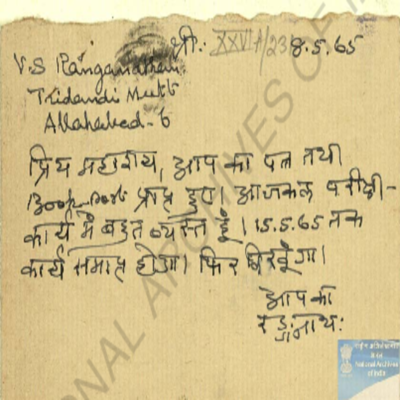 श्री:
XXVII/23
8.5.65
V.S Ranganathan
Tridandi Mutt
Allahabad-6
प्रिय महाशय, आप का पत्र तथा
Book-Post प्राप्त हुए। आजकल परीक्षा-
कार्य में बहुत व्यस्त हूँ। 15.5.65 तक
कार्य समाप्त होगा। फिर लिखूँगा।
आपका
NAL ARCHIVES OF